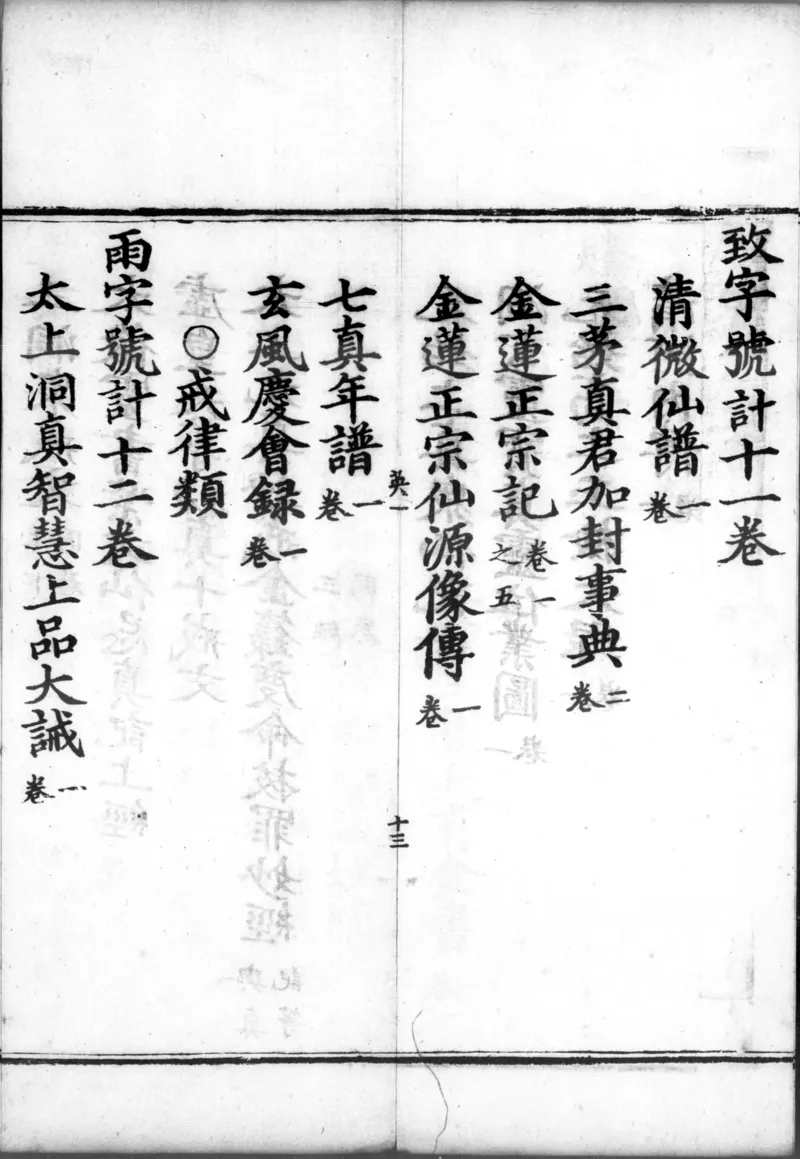 致字號計十一卷
清微仙譜一卷
三茅真君加封事典二卷
金蓮正宗記卷一之五
金蓮正宗仙源像傳一卷
英一
十三
七真年譜一卷
玄風慶會録一卷
○戒律類
雨字號計十二卷
太上洞真智慧上品大誡一卷